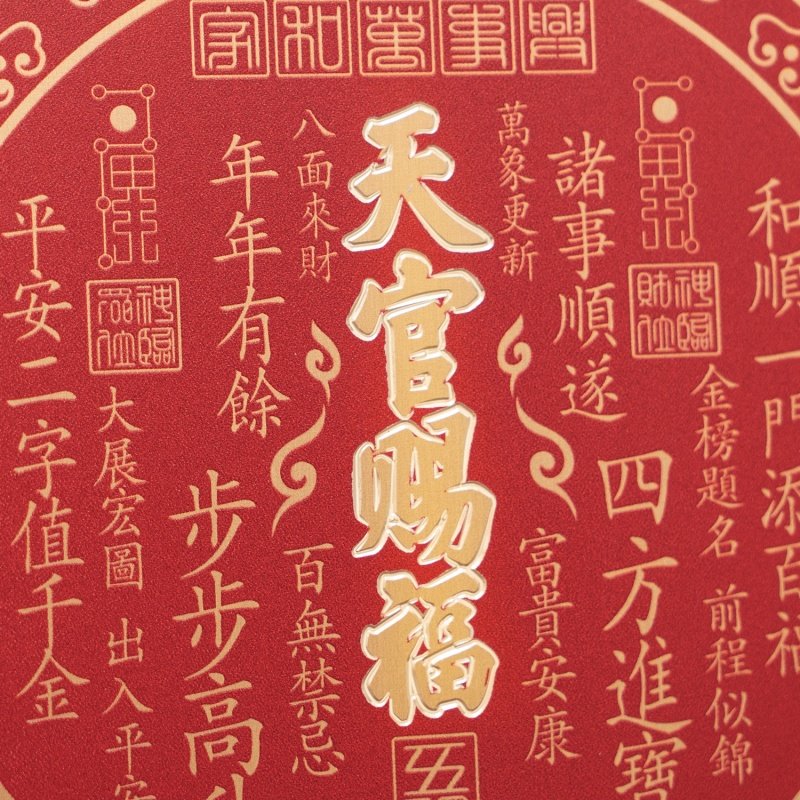 家和萬事興
和順一門添百福
金榜題名 前程似錦
神臨財位
諸事順遂
四方進寶
萬象更新
富貴安康
天官赐福
八面來財
百無禁忌
年年有餘
步步高
大展宏圖 出入平安
神臨
平安二字值千金